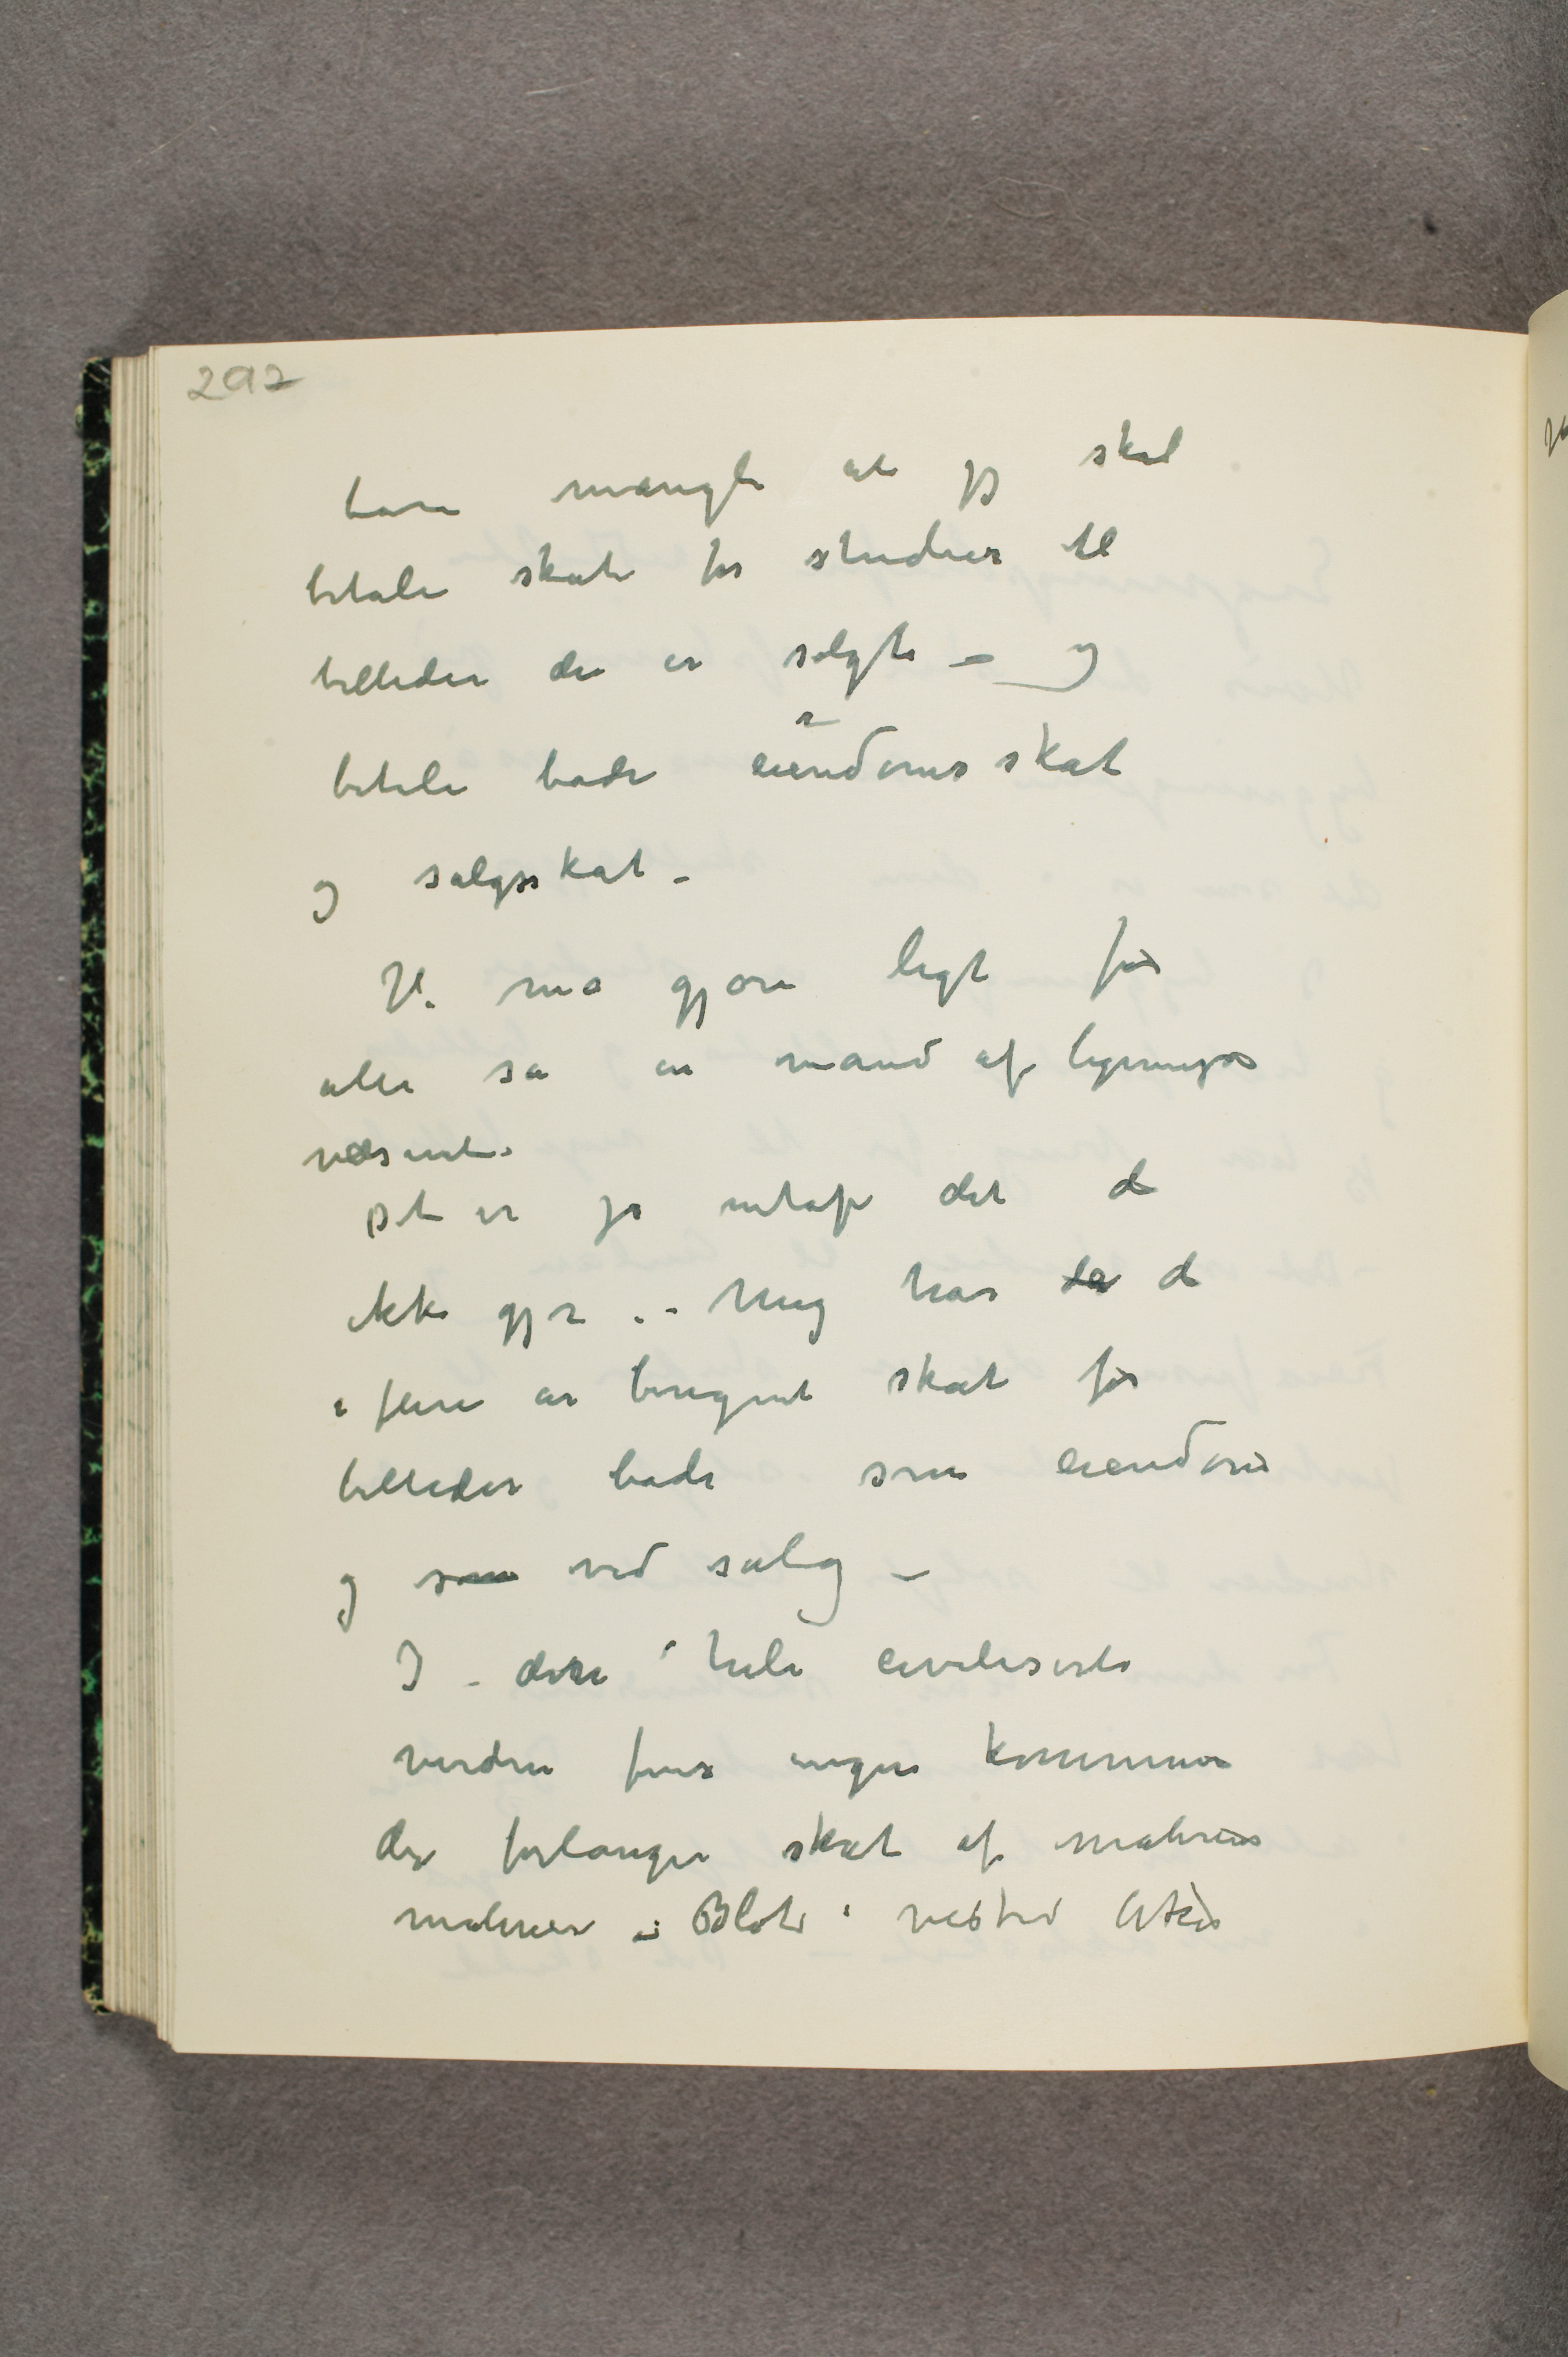 292
bare mangle at jeg skal
betale skat for studier til
billeder der er solgte – og
betale både eiendomsskat
og salgsskat –
Vi må gjøre ligt for
alle sa en mand af ligningsvæsenet.
Det er jo netop det de
ikke gjør . – Mig har de de
i flere år beregnet skat for
billeder både som eiendom
og som ved salg –
I den hele civiliserte
verden fins ingen kommune
der forlanger skat af maleres
malerier – Blot i vestre Aker